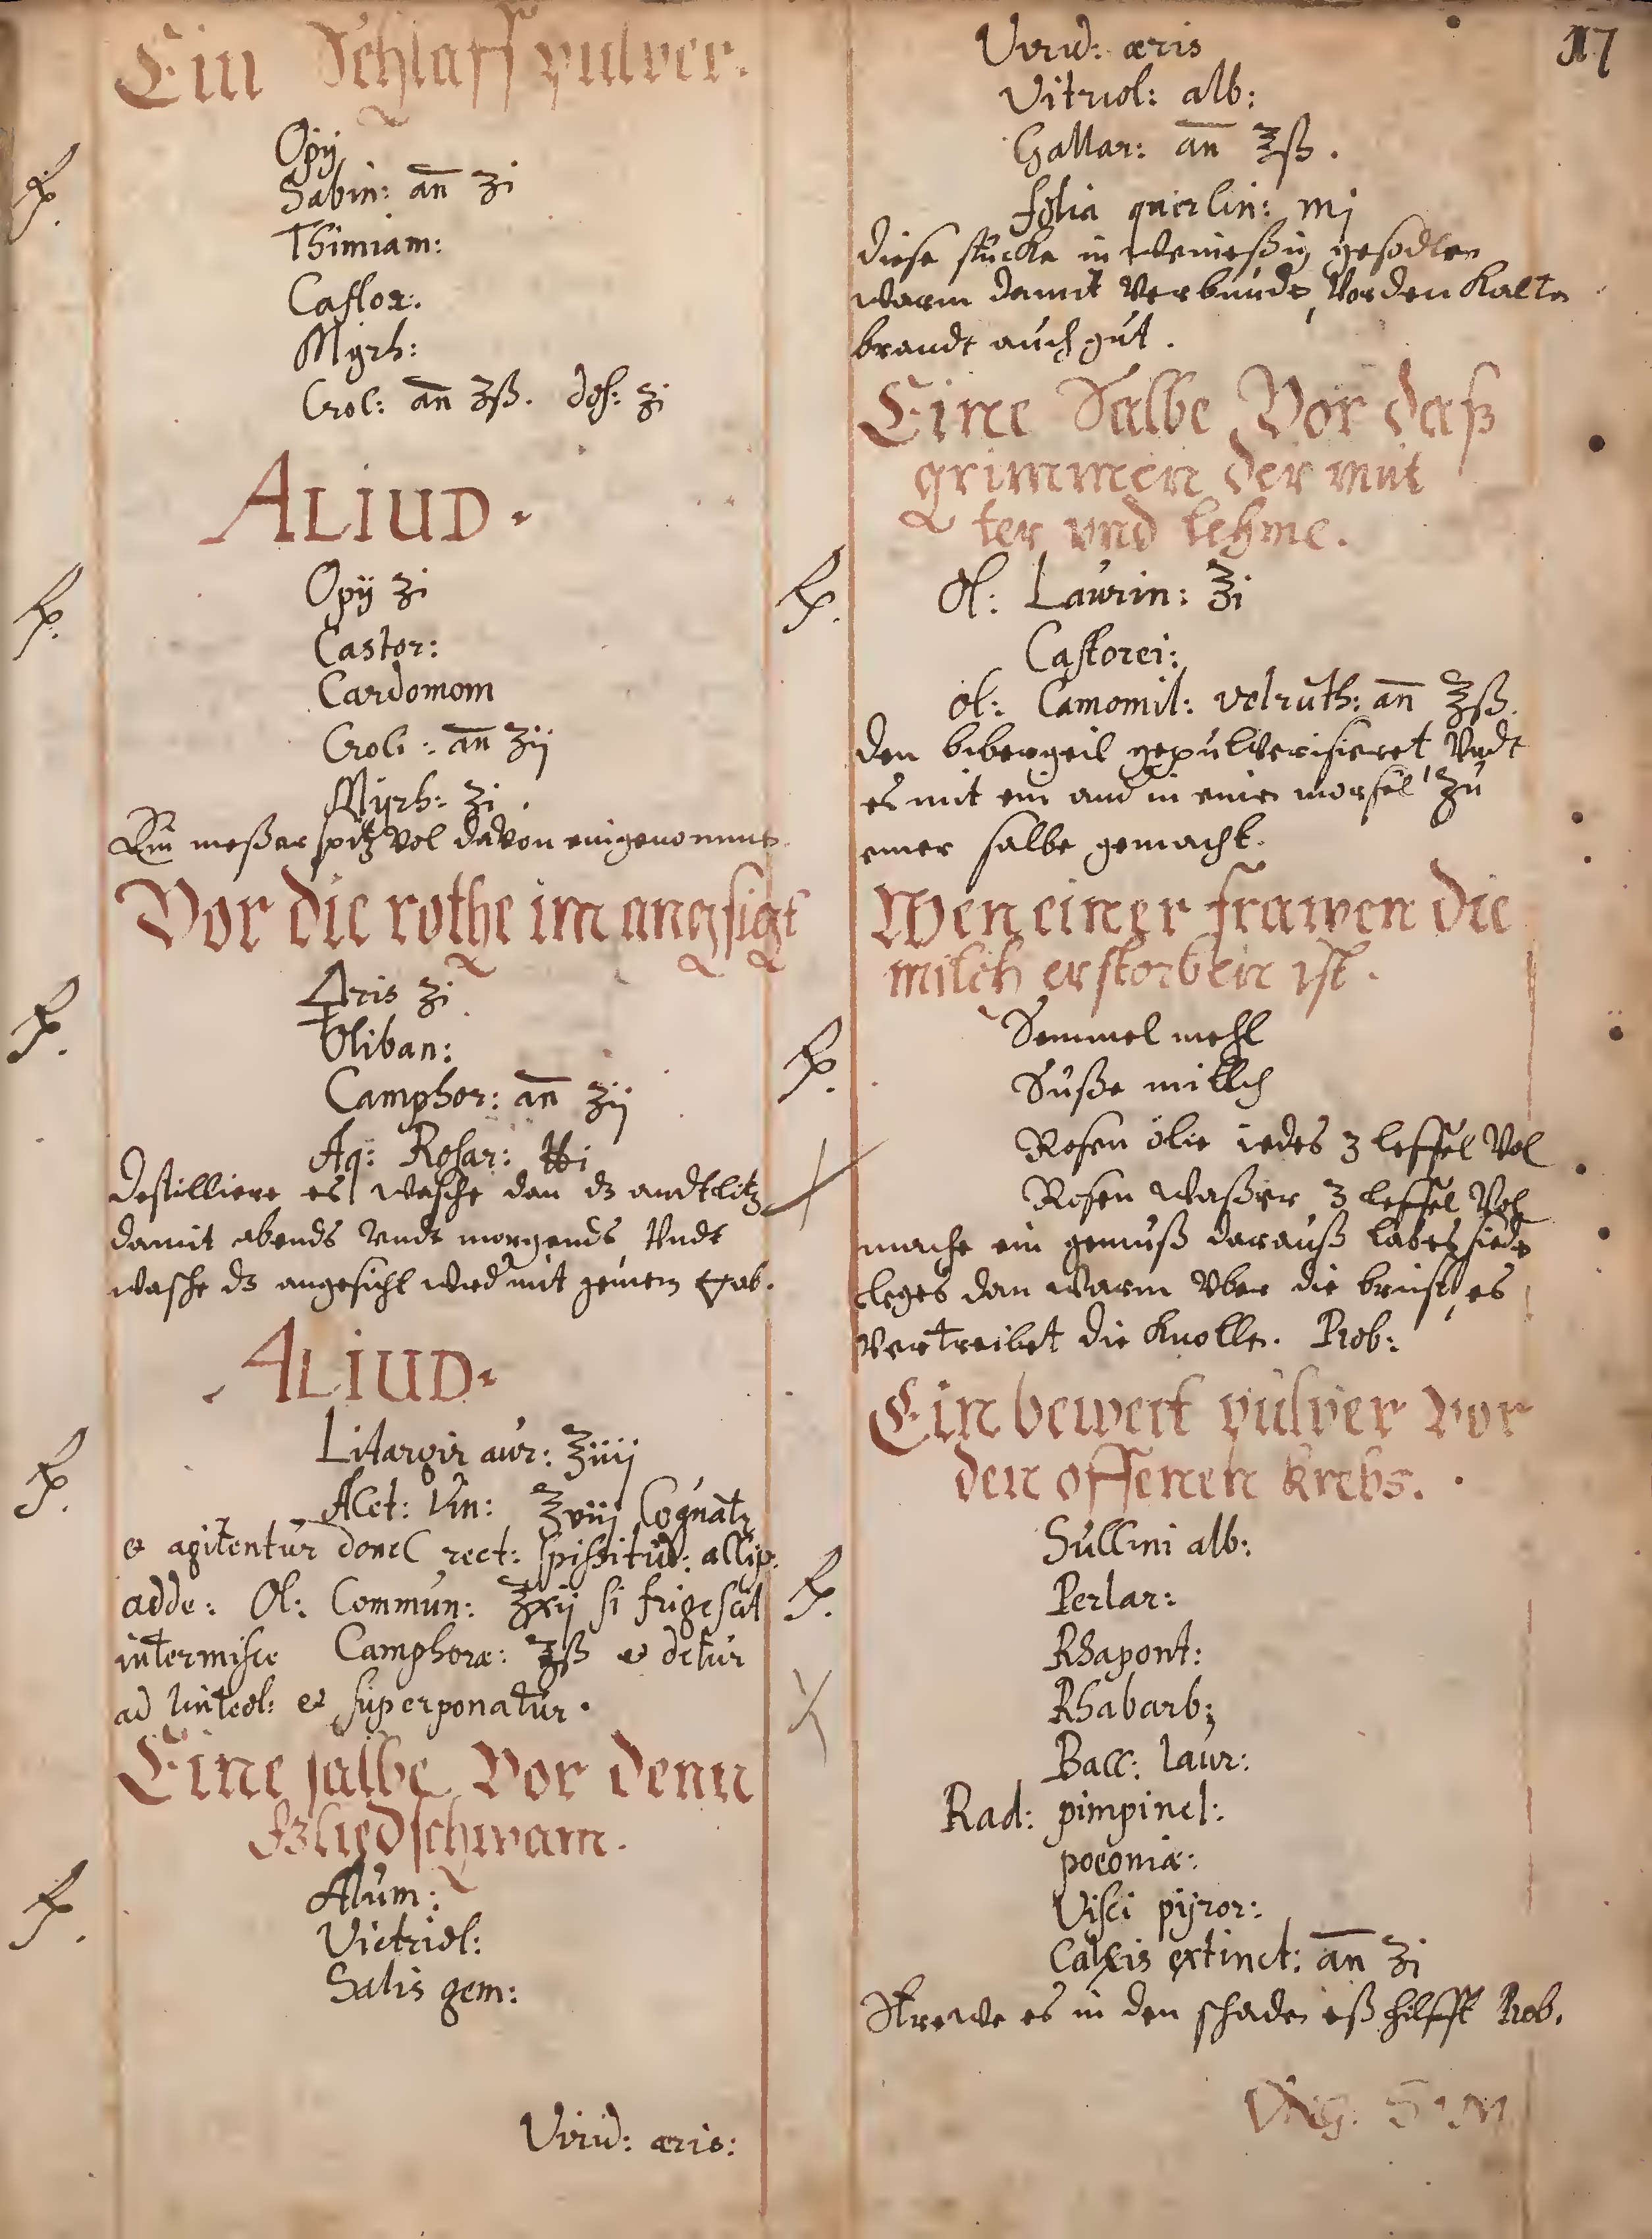 Ein Schlaff pulver.
℞.
Opij
Sabin: an̄ ʒi
Thimiam:
Castor:
Myrh:
Croc: an̄ ʒß. dos: ʒi
ALIUD.
℞.
Opij ʒi
Castor:
Cardomom
Croci: an̄ ʒij
Myrh: ʒi.
Ein meßer spitz vol davon eingenomme
Vor die rothe im angsigt
℞.
ʒi
Oliban:
Camphor: an̄ ʒij
Aq: Rosar: ℔i
Destilliere es wasche dan dz andtlitz
damit abends undt morgends, Undt
wasche dz angesicht wied mit ab.
ALIUD.
℞.
Litargir aur: ℥iiij
Acet: Vin: ℥viij
& agitentur donec rect: spissitud:
adde: Ol: Commun: ℥xij si frigescat
intermisce Camphoræ: ʒß & detur
ad linteol: & superponatur.
Eine salbe Vor denn
Gliedschwam.
℞.
Alum:
Vietriol:
Salis gem:
Virid: æris:
17
Virid: æris
Vitriol: alb:
Gallar: an̄ ℥ß.
folia querlin: mj
diese stucke in gesodten
warm damit Verbunde, Vor den Kalte
brandt auch gut.
Eine Salbe Vor daß
grimmen der mut
ter und lehme.
℞.
Ol: Laurin: ℥i
Castorei:
ol: Camomil: volruth: an̄ ℥ß.
den bibergeil gepulverisieret Undt
es mit ein and in einē morsel zu
einer salbe gemacht.
Wen einer frawen die
milch erstorben ist.
℞.
Semmel mehl
Suße milch
Rosen ölie iedes 3 leffel Vol
Rosen waßer 3 leffel Vol
mache ein gemuß darauß laßes siede
leges dan warm Uber die brust, es
vertreibet die Knolle. Prob:
Ein bewert pulver vor
den offenen krebs.
℞.
Sullini alb:
Perlar:
Rhapont:
Rhabarb:
Bacc: laur:
Rad: pimpinel:
poeoniæ:
Visci pyror:
Calxis extinct: an̄ ʒi
Strewe es in den schaden eß hilfft Prob.